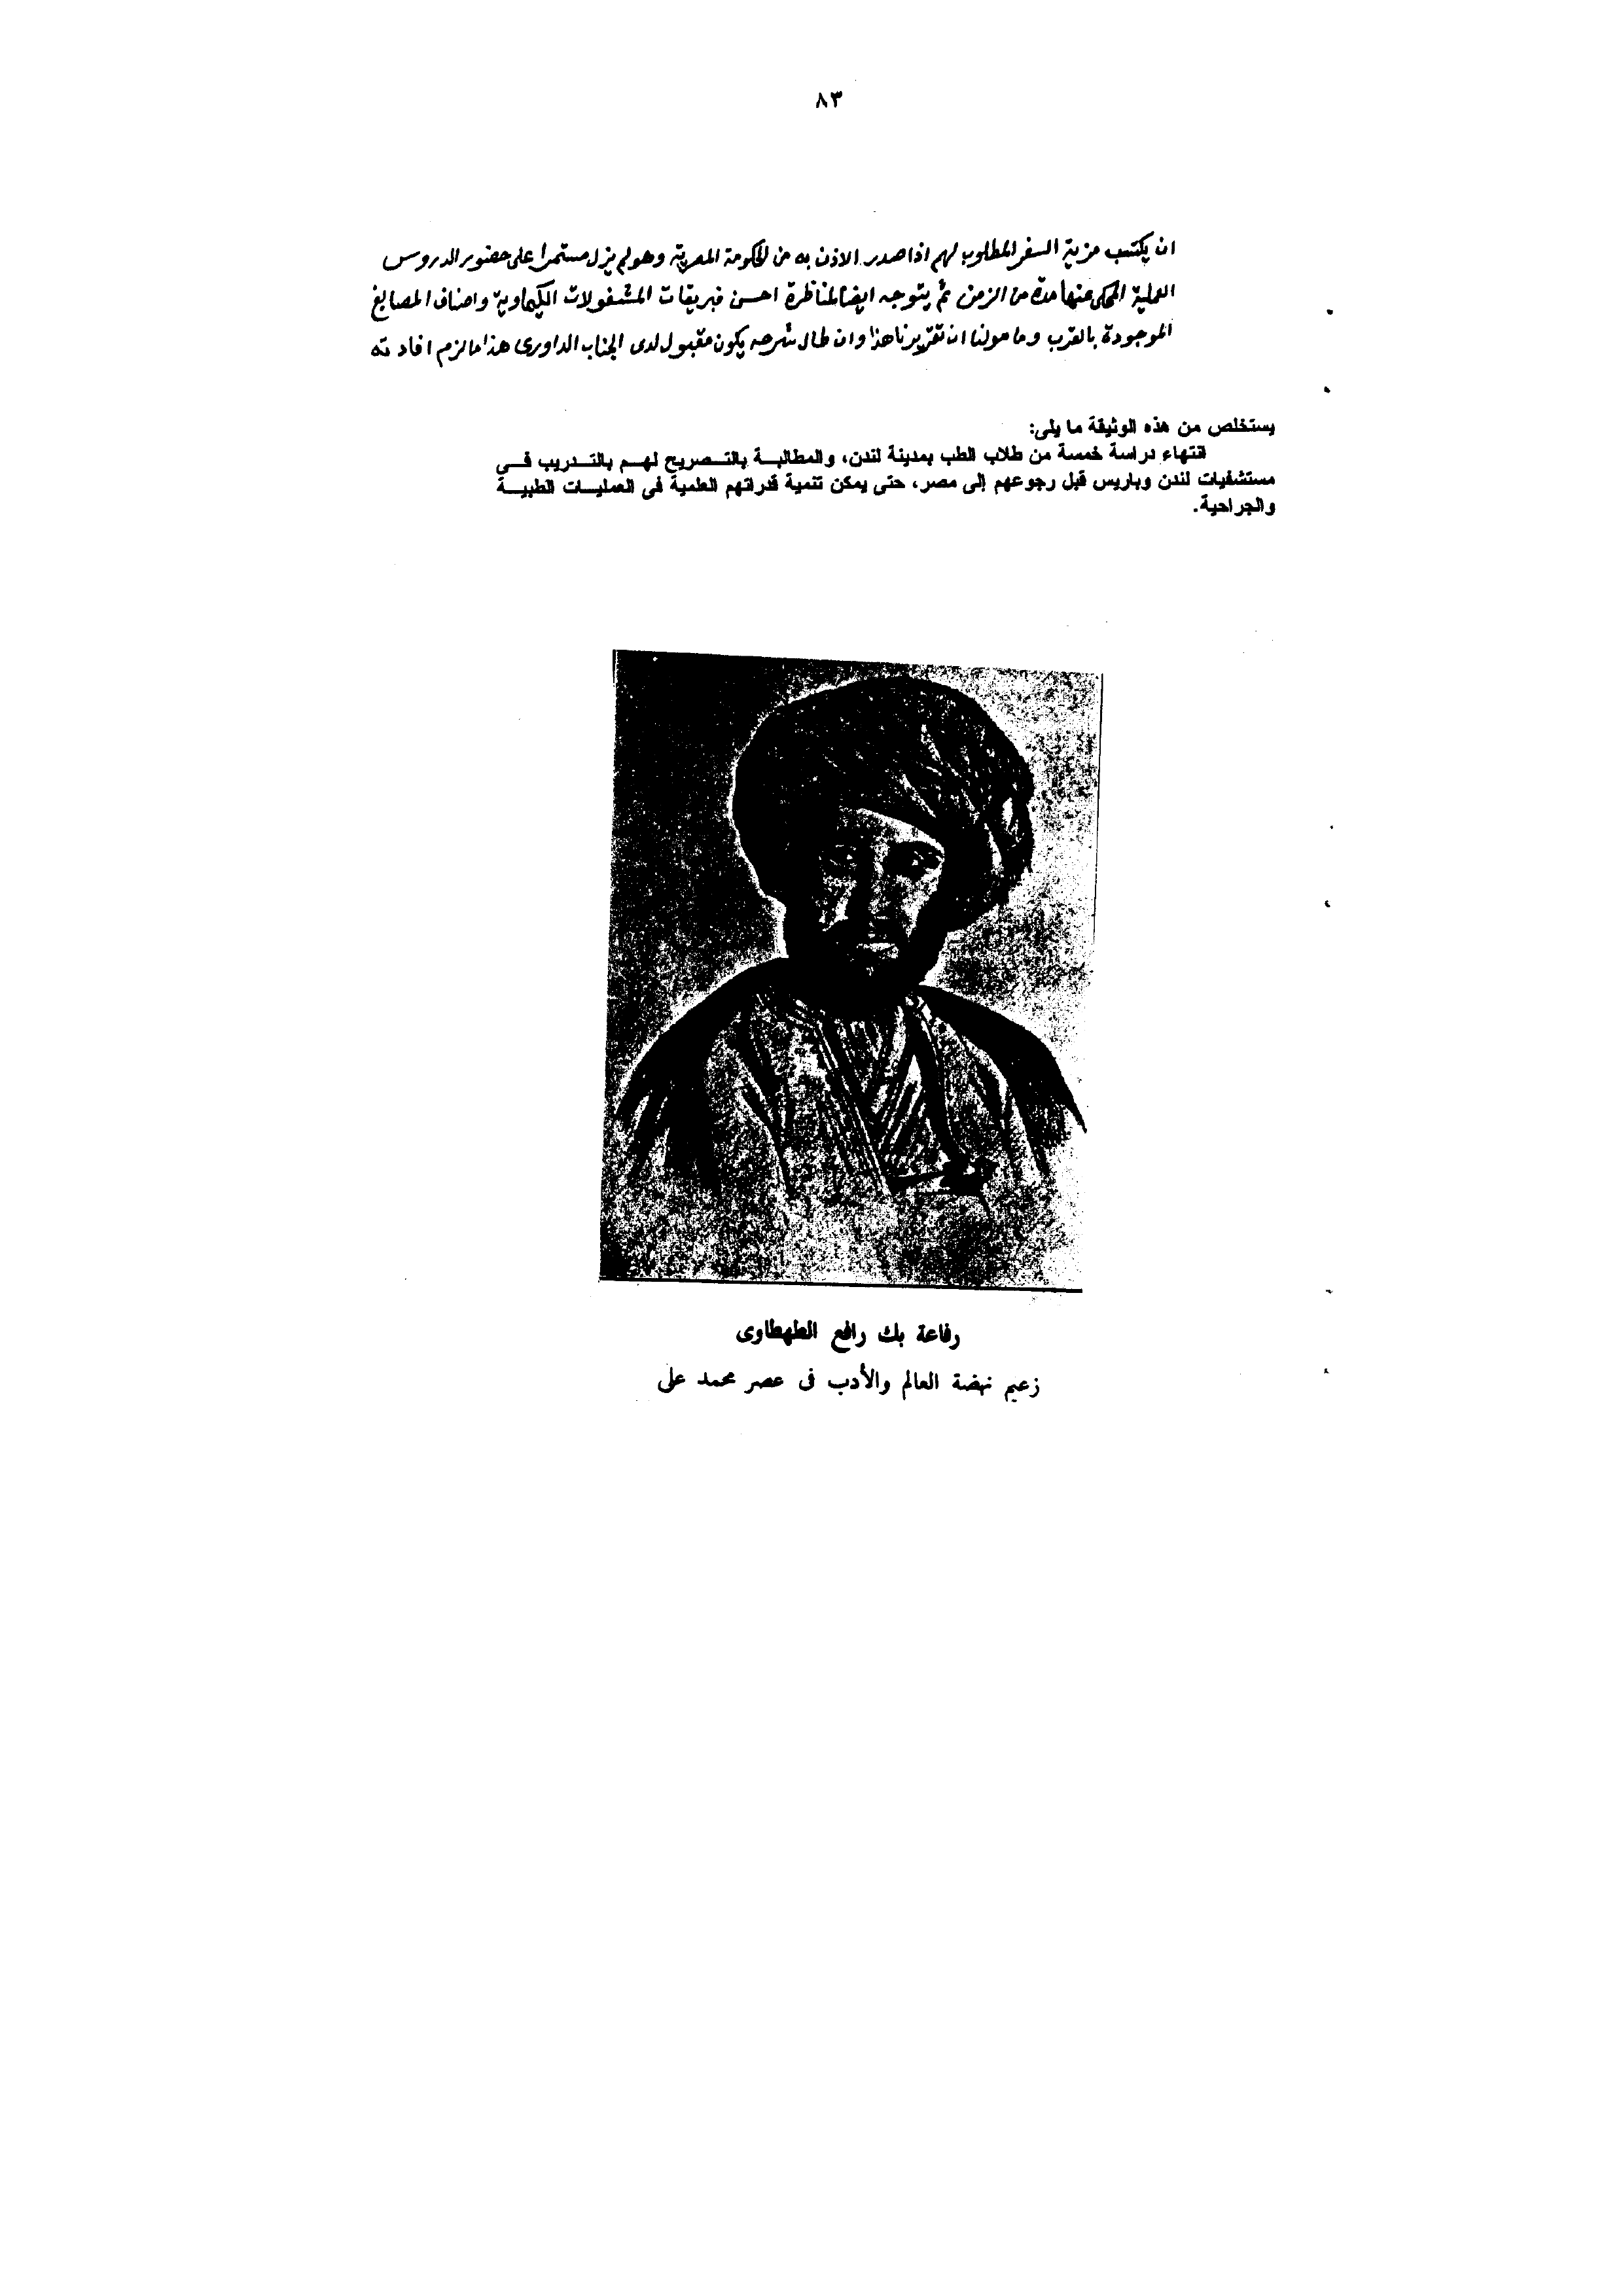 ٨٣
ان يكتسب مزية السفر المطلوب لهم اذا صدر الاذن به من الحكومة المصرية وهو لم يزل مستمرا على حضور الدروس
العملية المحكى عنها مدة من الزمن ثم يتوجه ايضا لمناظرة احسن فبريقات المشغولات الكيماوية واصناف المصابغ
الموجودة بالقرب ومامولنا ان تقريرنا هذا وان طال شرحه يكون مقبول لدى الجناب الداورى هذا ما لزم افادته
يستخلص من هذه الوثيقة ما يلى:
انتهاء دراسة خمسة من طلاب الطب بمدينة لندن، والمطالبة بالتصريح لهم بالتدريب فى
مستشفيات لندن وباريس قبل رجوعهم إلى مصر، حتى يمكن تنمية قدراتهم العلمية فى العمليات الطبية
والجراحية.
رفاعة بك رافع الطهطاوى
زعيم نهضة العالم والأدب فى عصر محمد على